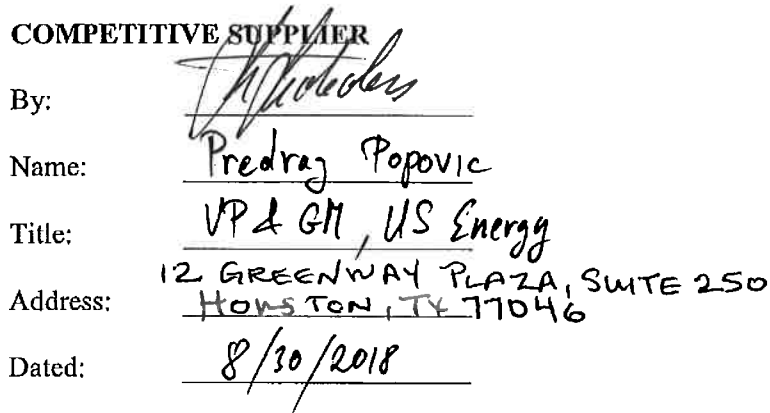 COMPETITIVE SUPPLIER
By:
Name: Predrag Popovic
Title: VP & GM, US Energy
12 GREENWAY PLAZA, SUITE 250
Address: HOUSTON, TX 77046
Dated: 8/30/2018